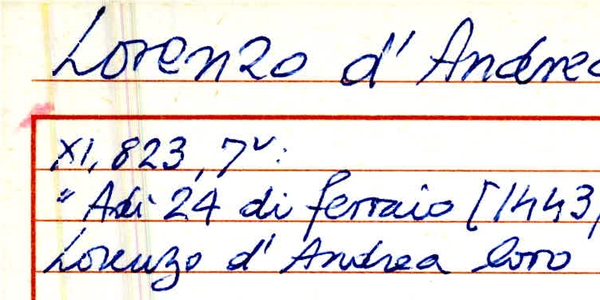 Lorenzo d'Andrea
XI, 823, 7v:
"Adi 24 di ferraio [1443,
Lorenzo d'Andrea loro